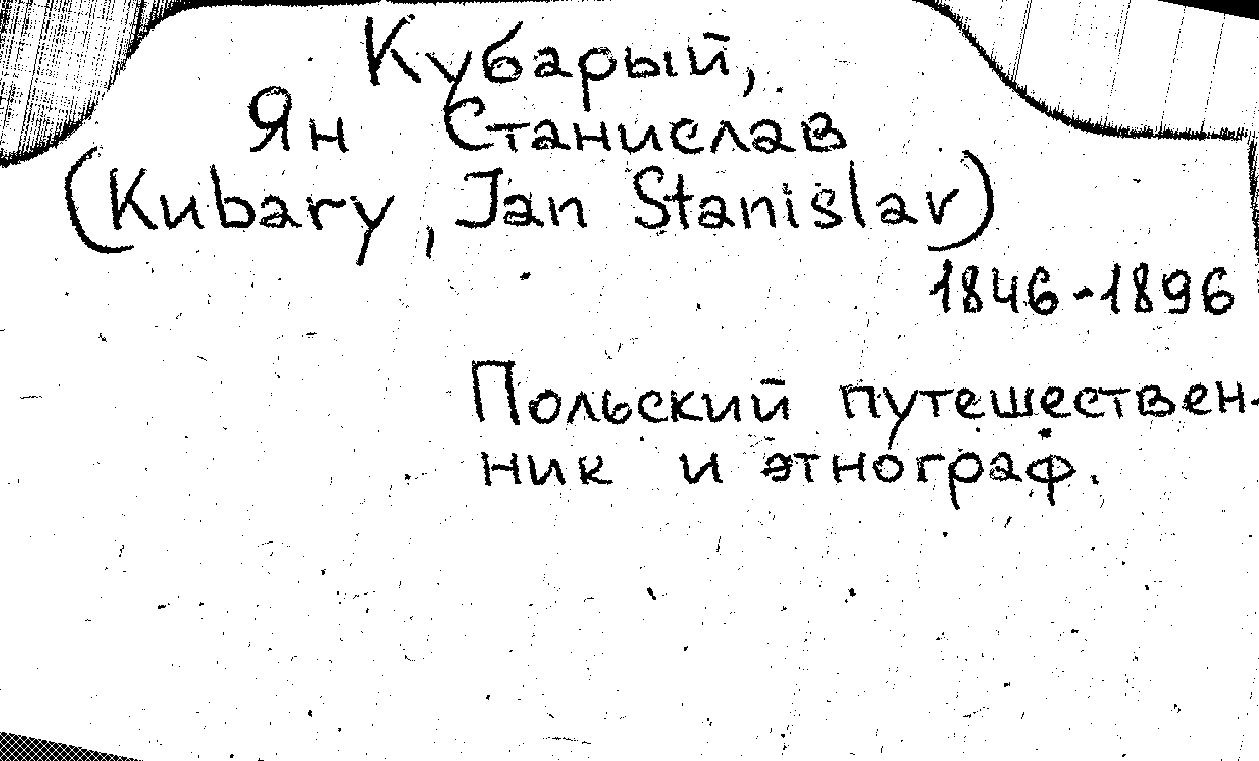 Кубарый,
Ян Станислав
(Kubary, Jan Stanislav)
1846-1896
Польский путешествен-
ник и этнограф.